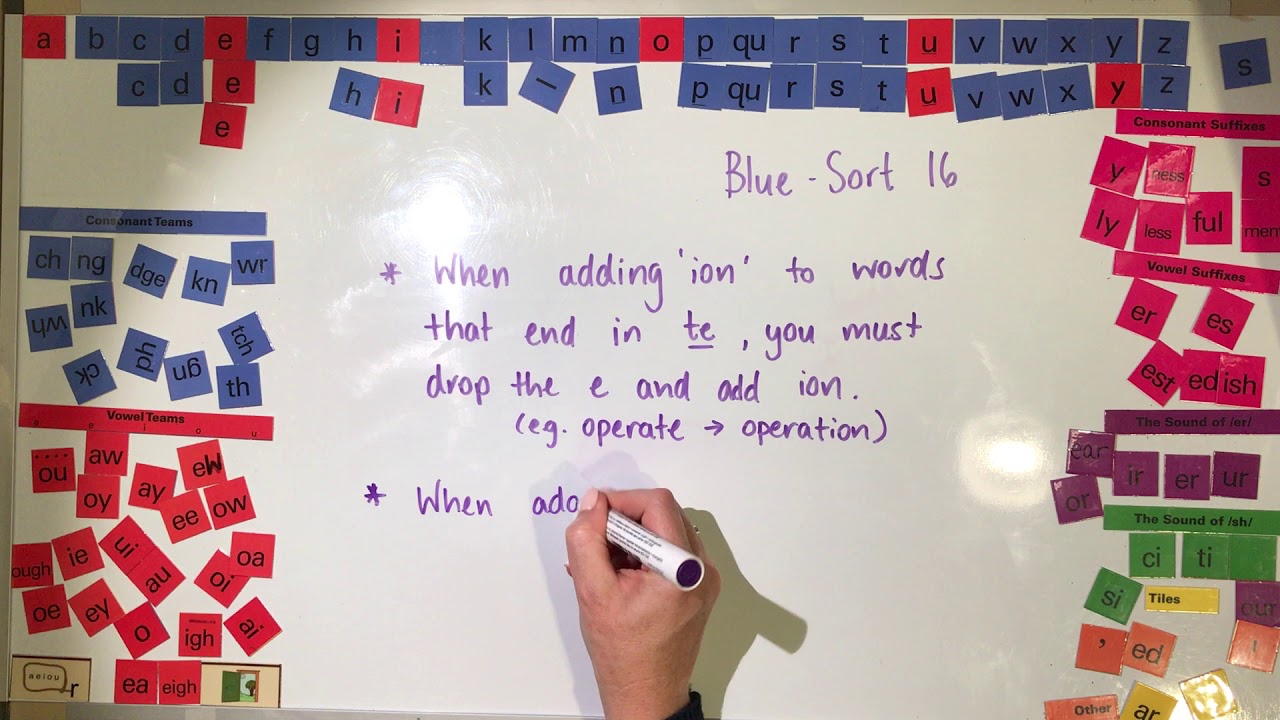 a b c d e f g h i k l m n o p qu r s t u v w x y z
c d e h i k n p qu r s t u v w x y z s
e
Consonant Suffixes
y ness s
ly less ful
Blue - Sort 16
Consonant Teams
ch ng dge kn wr
wh nk
ck ph gu tch th
* When adding 'ion' to words
that end in te, you must
drop the e and add ion.
(eg. operate → operation)
* When
Vowel Suffixes
er es
est ed ish
Vowel Teams
e e i o u
ou aw ew
oy ay ee ow
ough ie ui au oi oa
oe ey o igh ai
aeiou r ea eigh
The Sound of /er/
ear ir er ur
or
The Sound of /sh/
ci ti
si Tiles our
' ed !
Other ar